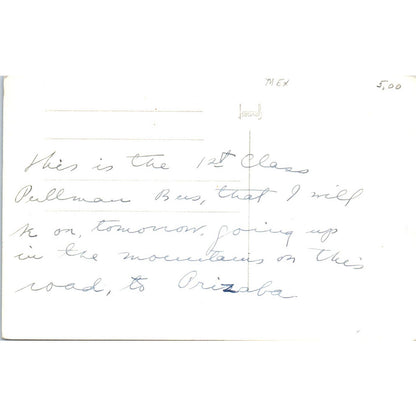 MEX 5,00
This is the 1st Class
Pullman Bus, that I will
be on, tomorrow, going up
in the mountains on this
road, to Orizaba